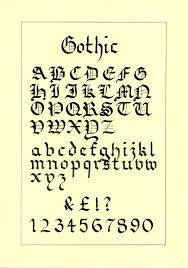 Gothic
ABCDEFG
HIJKLMN
OPQRSTU
VWXYZ
abcdefghijkl
mnopqrstuvw
xyz
& £!?
1234567890